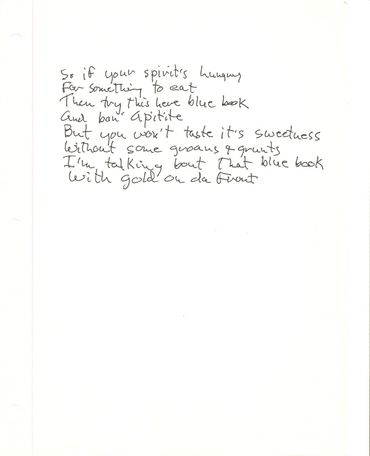 So if your spirit's hungry
For something to eat
Then try this here blue book
And bon" apitite
But you won't taste it's sweetness
Without some groans & grunts
I'm talking bout that blue book
With gold on da Front